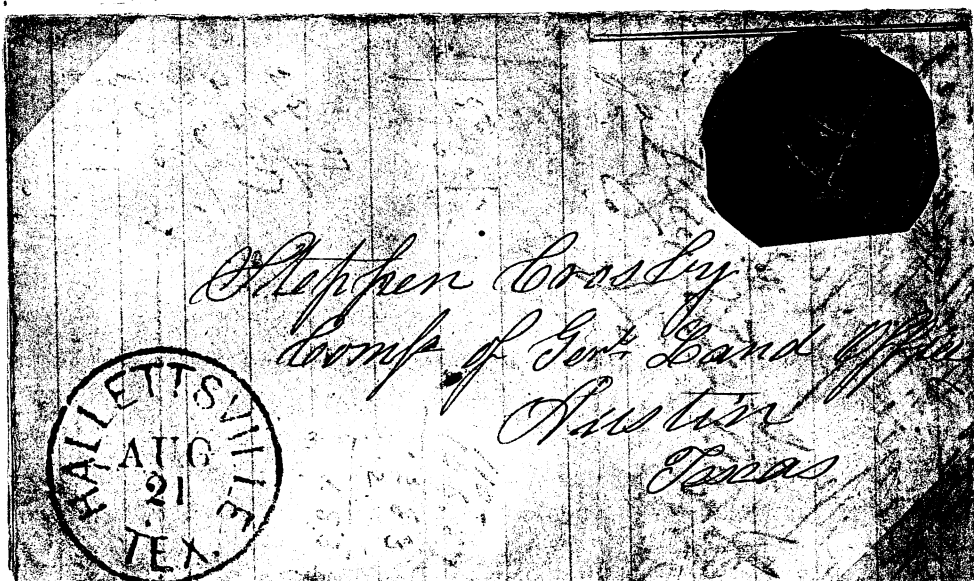 Stephen Crosby
of Genl Land Office
Austin
Texas
HALLETTSVILLE
AUG
21
TEX.